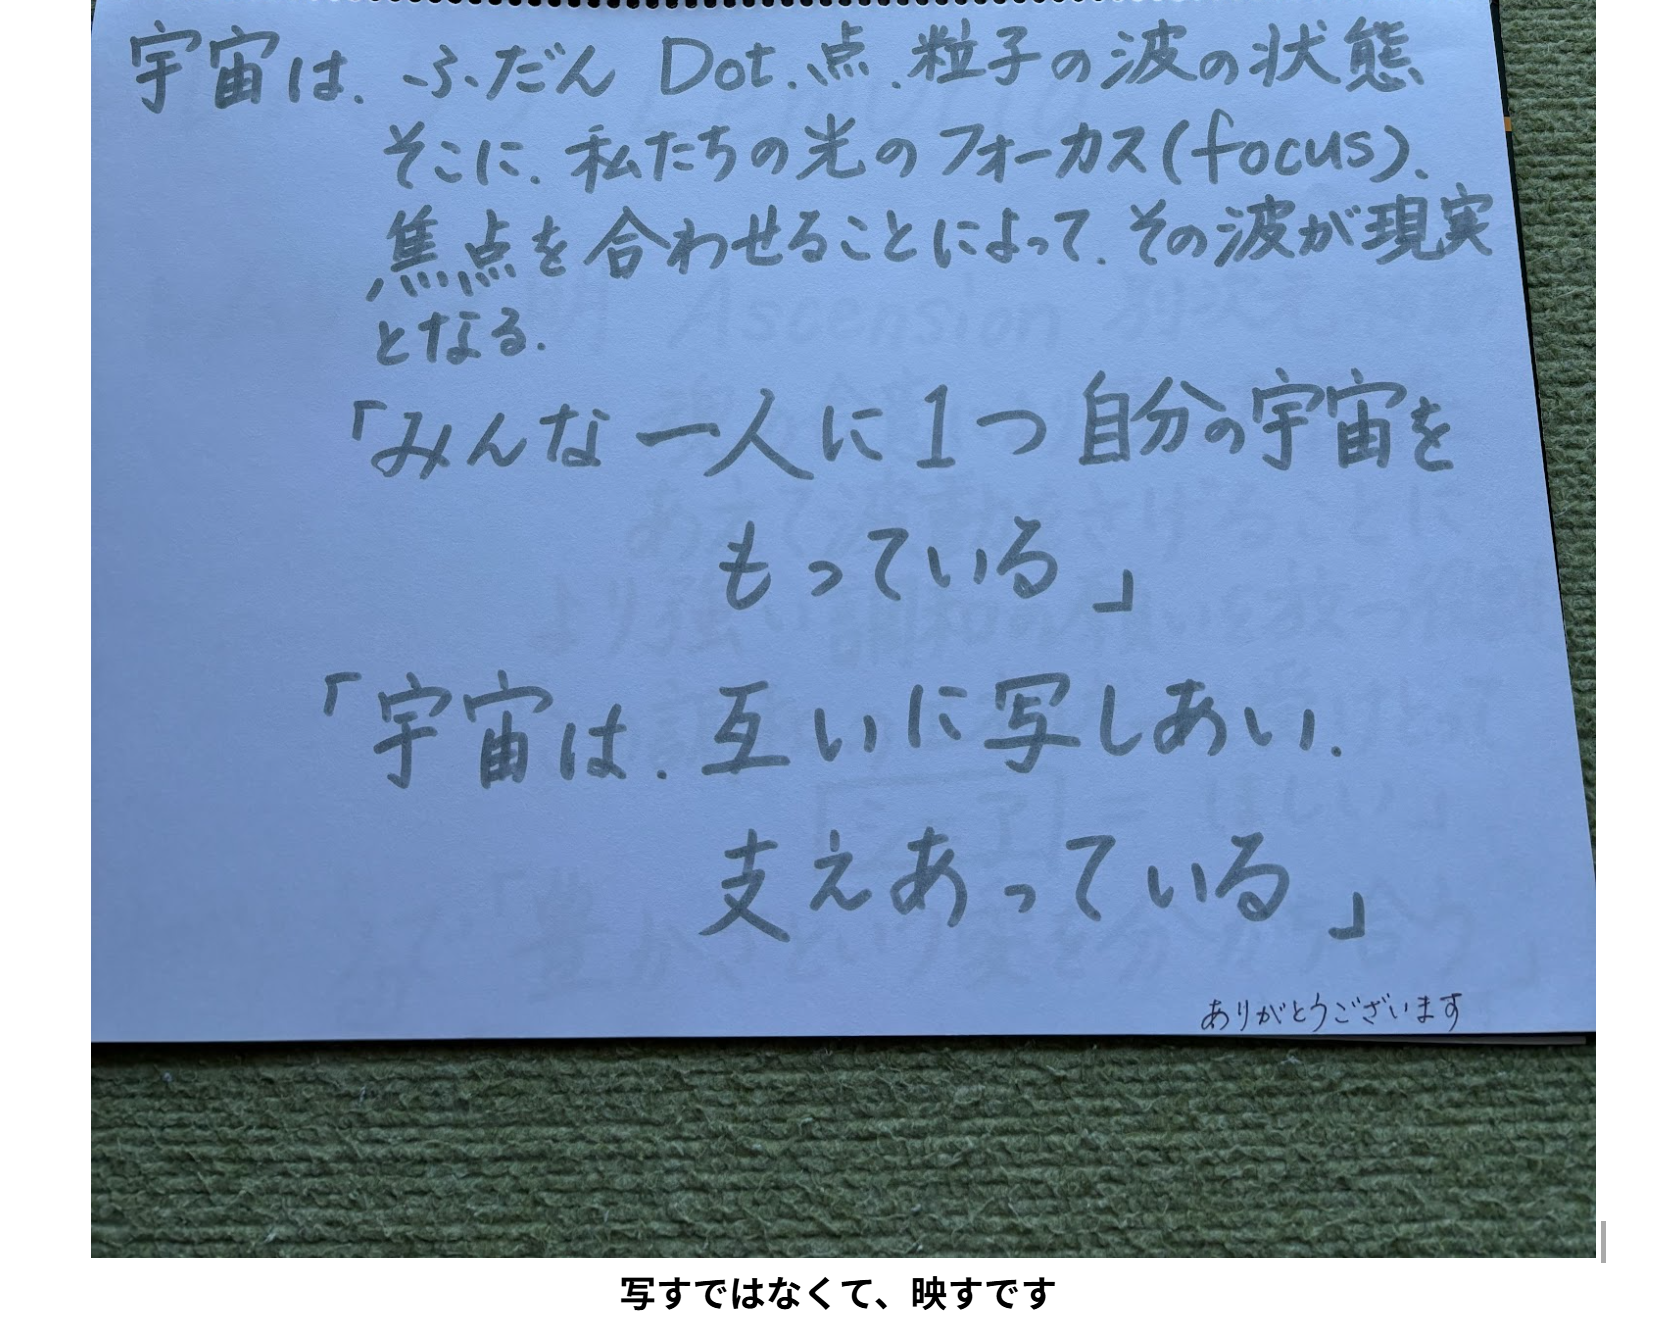 宇宙は、ふだん Dot、点、粒子の波の状態
そこに、私たちの光のフォーカス(focus)、
焦点を合わせることによって、その波が現実
となる.
「みんな一人に1つ自分の宇宙を
もっている」
「宇宙は、互いに写しあい、
支えあっている」
ありがとうございます
写すではなくて、映すです